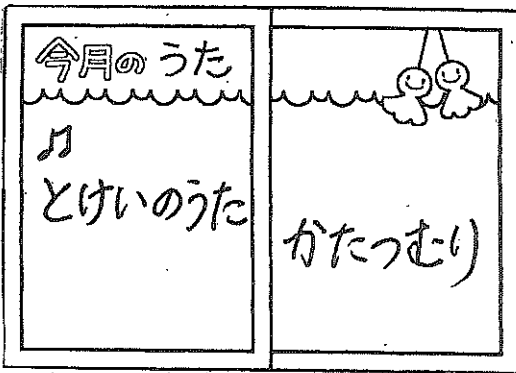 今月のうた
♫
とけいのうた
かたつむり